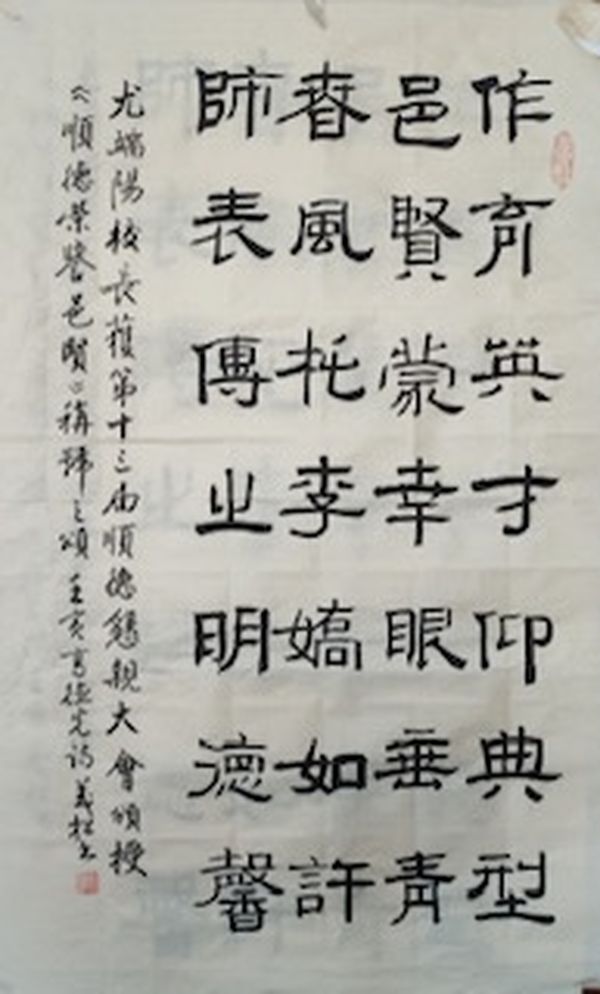 作育英才仰典型
邑賢蒙幸眼垂青
春風托李嬌如許
師表傳之明德馨
尤端陽校長獲第十三屆順德懇親大會頒授
《順德榮譽邑賢》稱號之頌 亥 德 詩 義 書